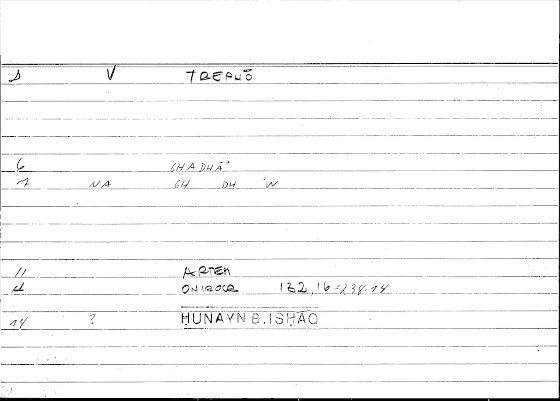 V TREPHŌ
6 GHADHĀ
NA GH DH W
11 ARTEM
ONIROCR 132,16=238.14
14 ? ḤUNAYN B. ISḤĀQ